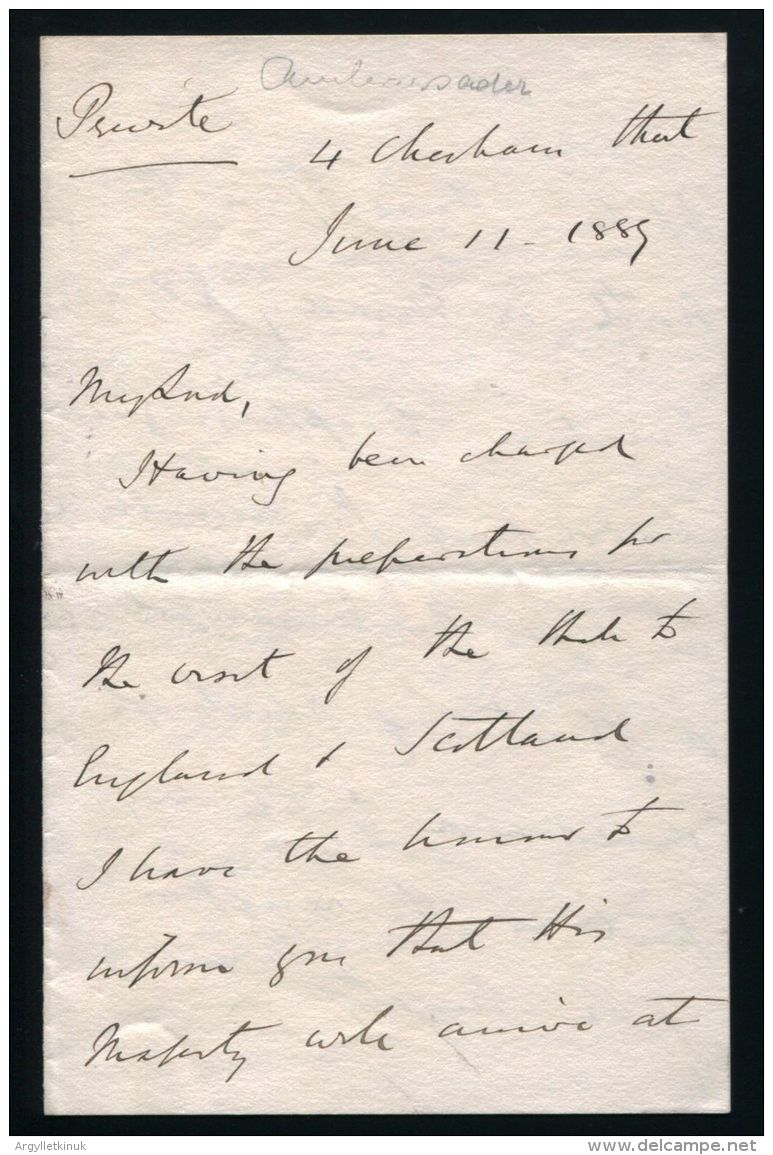 Ambassador
Private
4 Chesham Street
June 11 - 1889
My Lord,
Having been charged
with the preparations for
the visit of the Shah to
England & Scotland
I have the honour to
inform you that His
Majesty will arrive at
Argylletkinuk
www.delcampe.net